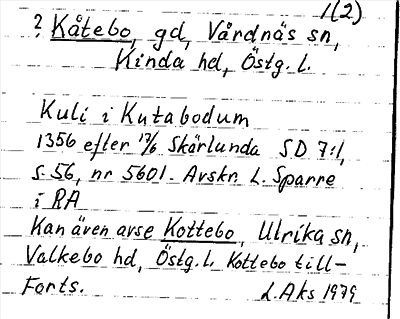 1(2)
? Kåtebo, gd, Vårdnäs sn,
Kinda hd, Östg. l.
Kuli i Kutabodum
1356 efter 17/6 Skärlunda SD 7:1,
s. 56, nr 5601. Avskr. L. Sparre
i RA
Kan även avse Kottebo, Ulrika sn,
Valkebo hd, Östg. l. Kottebo till-
Forts. L. Aks 1979